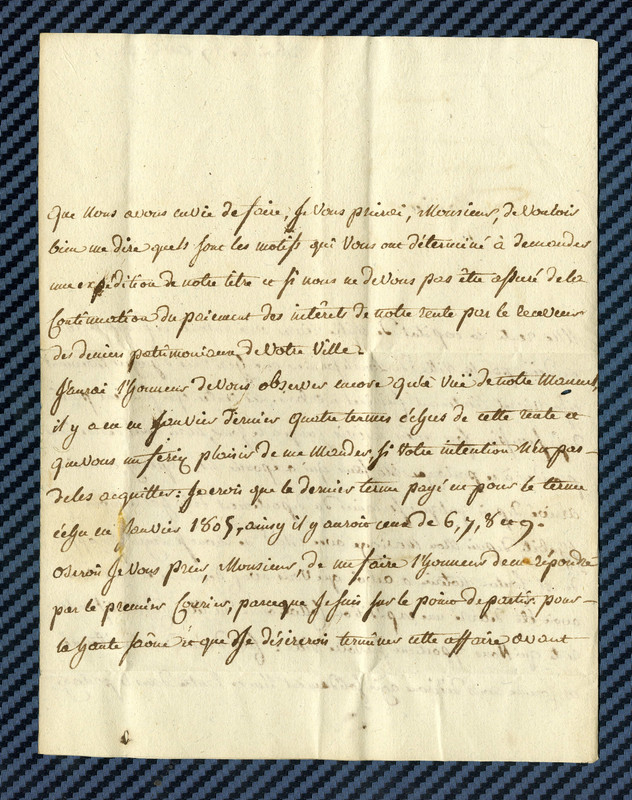 que nous avons envie de faire, Je vous prierai, Monsieur, de vouloir
bien me dire quels sont les motifs qui vous ont déterminé à demander
une expédition de notre titre et si nous ne devons pas être assuré de la
Continuation du paiement des intérêts de notre rente par le receveur
des deniers patrimoniaux de votre ville.
J'aurai l'honneur de vous observer encore qu'à vüe de notre Manuel,
il y a eu en Janvier dernier quatre termes échus de cette rente et
que vous me feriez plaisir de me Mander, si votre intention n'en pas
de les acquitter: Je crois que le dernier terme payé en pour le terme
échu en Janvier 1805, ainsy il y auroit ceux de 6, 7, 8 et 9.
oserois Je vous prier, Monsieur, de me faire l'honneur de me répondre
par le premier Courier, parceque Je suis sur le point de partir pour
la haute saône et que Je désirerois terminer cette affaire avant